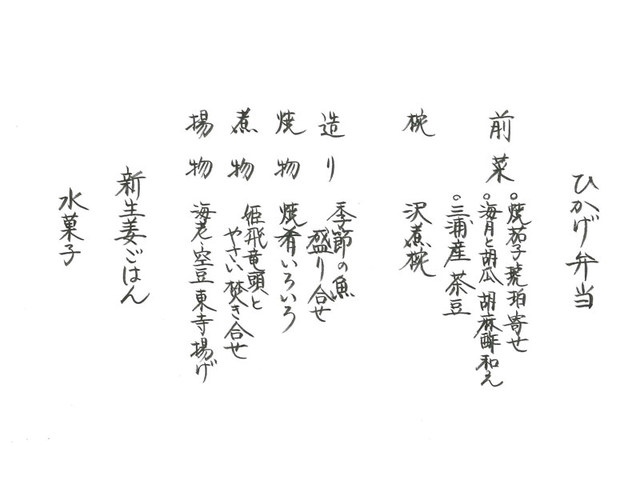 ひかげ弁当
前菜
。焼茄子琥珀寄せ
。海月と胡瓜 胡麻酢和え
。三浦産 茶豆
椀 沢煮椀
造り 季節の魚
盛り合せ
焼物 焼肴いろいろ
煮物 姫飛竜頭と
やさい焚き合せ
揚物 海老、空豆 東寺揚げ
新生姜ごはん
水菓子